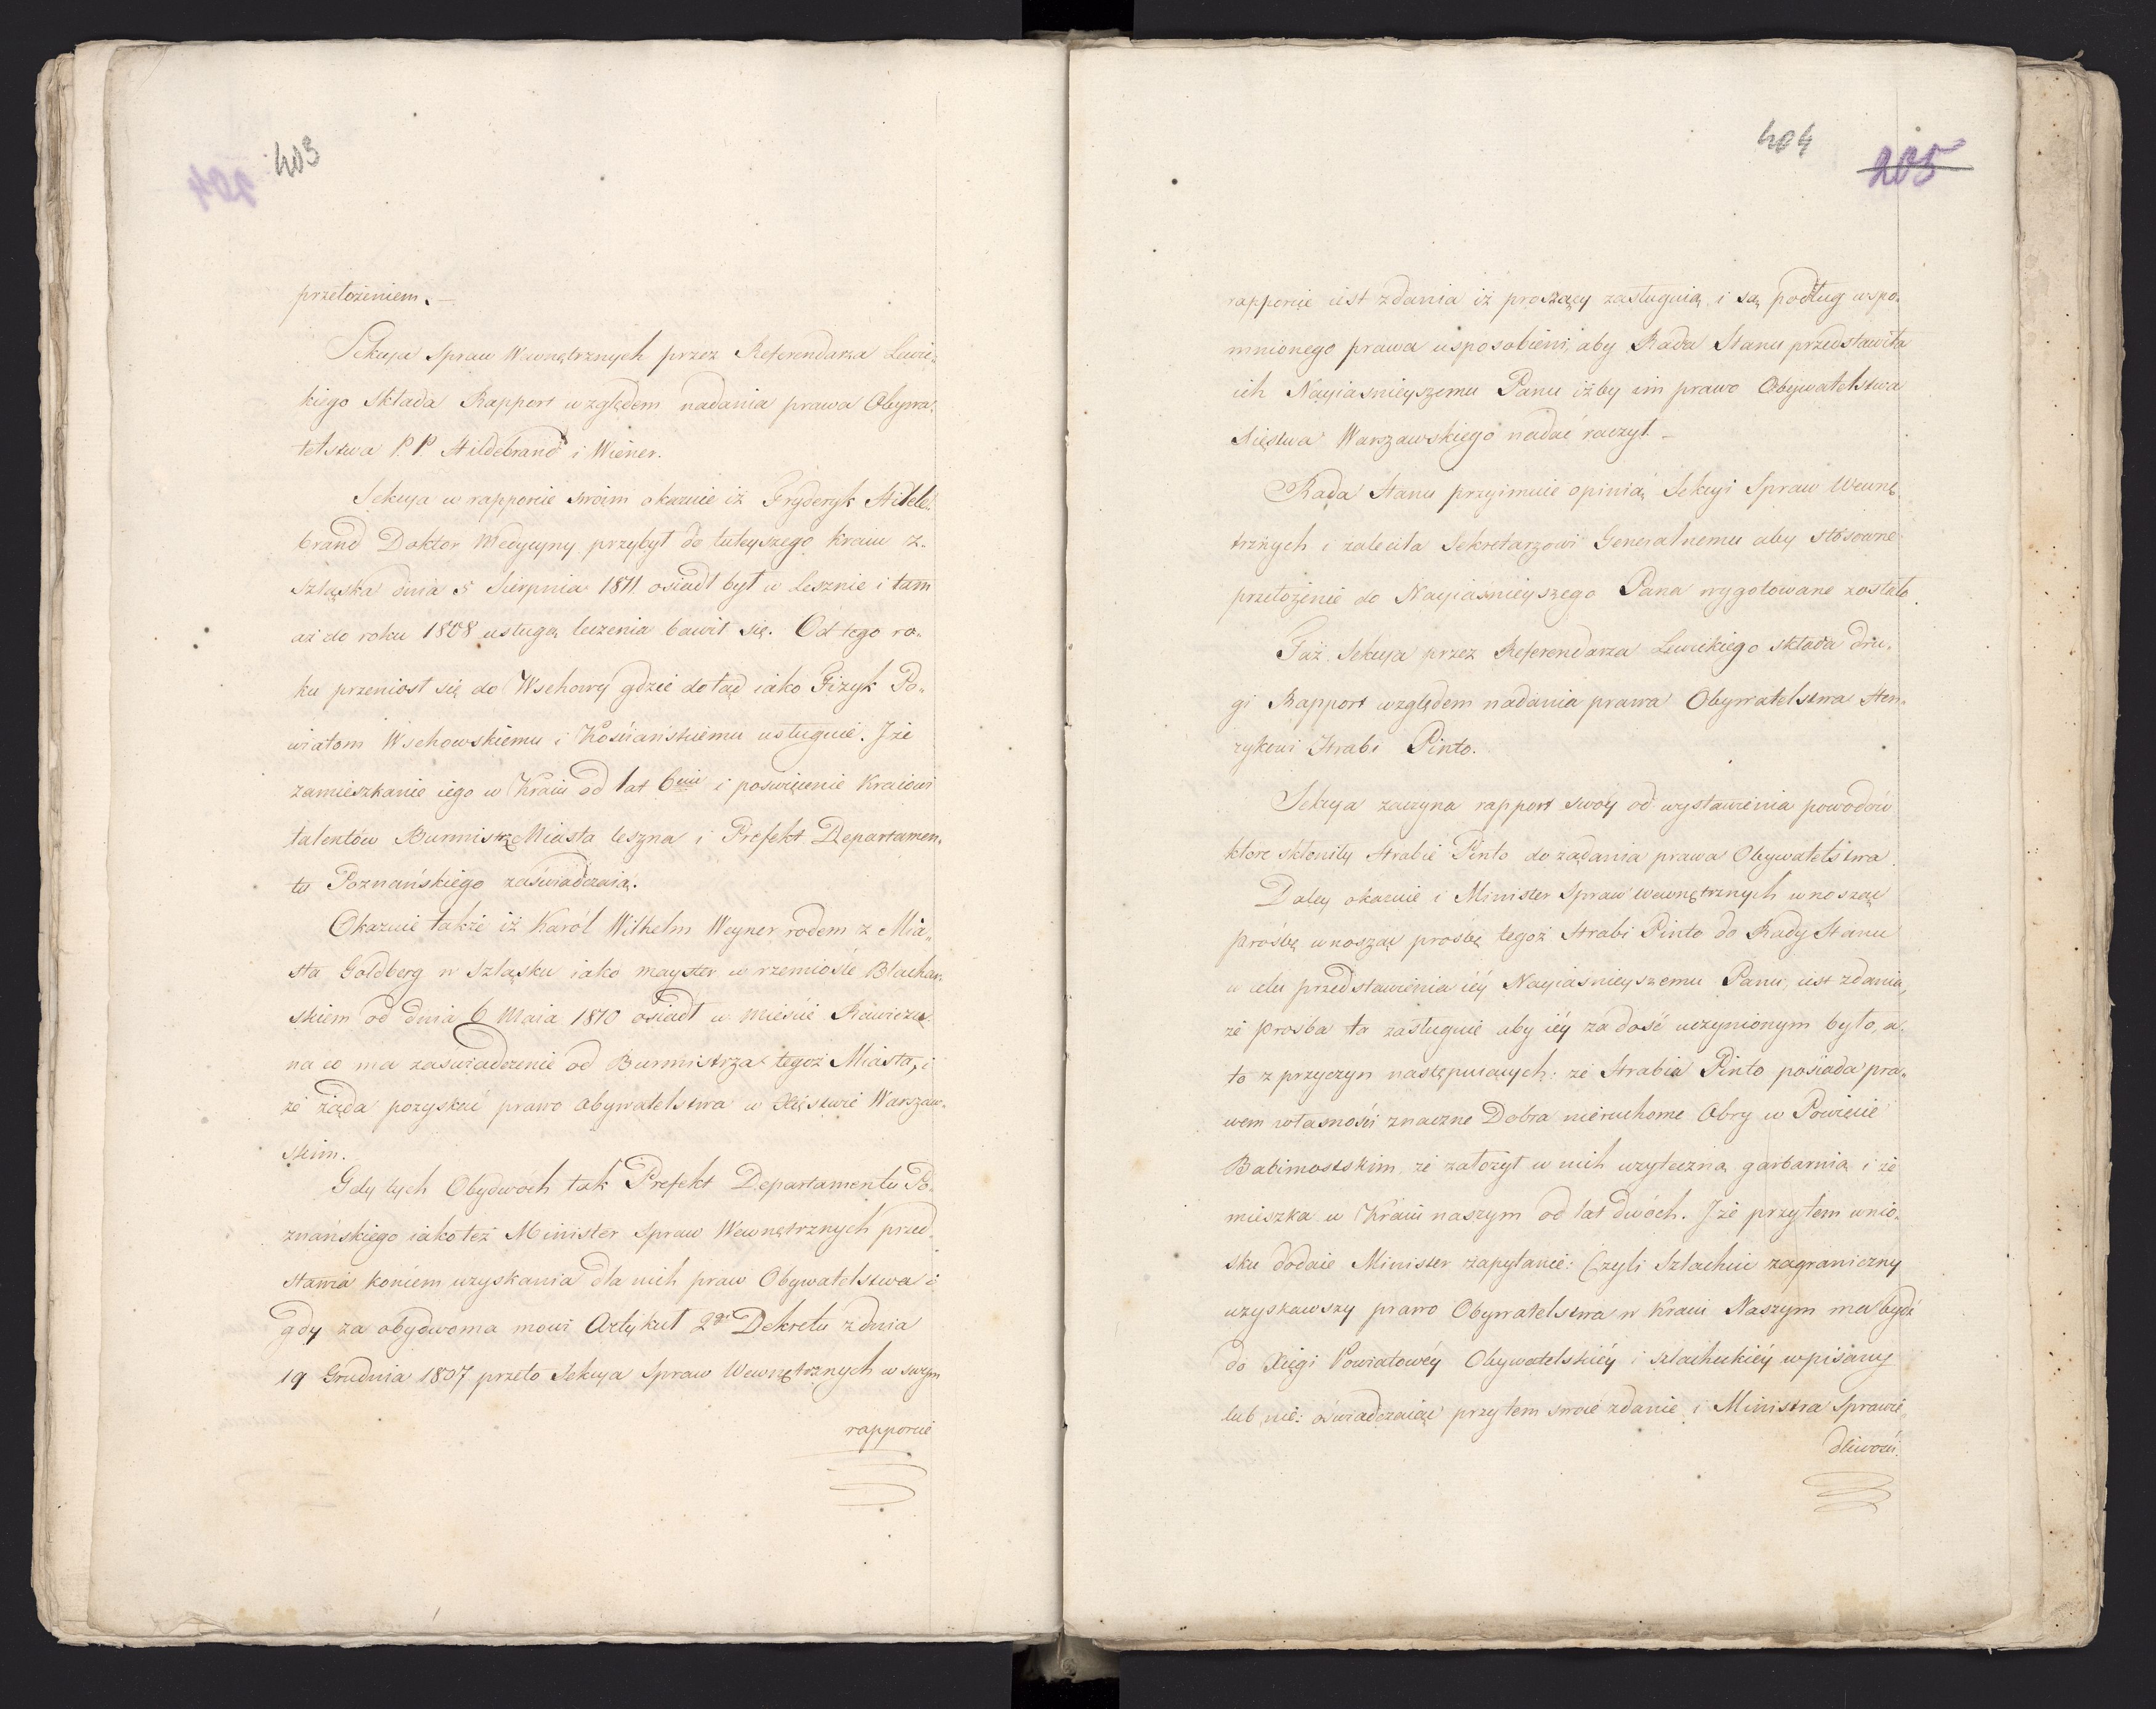 403
204
przełożeniem. —
Sekcya Spraw Wewnętrznych przez Referendarza Lewic„
kiego Składa Rapport względem nadania prawa Obywa„
telstwa P.P. Hildebrand i Wiener.
Sekcya w rapporcie swoim okazuie iż Fryderyk Hilde„
brand Doktor Medycyny przybył do tuteyszego kraiu z„
Szląska dnia 5 Sierpnia 1811 osiadł był w Lesznie i tam
aż do roku 1808 usługą leczenia bawił się. Od tego ro„
ku przeniosł się do Wschowy gdzie dotąd iako Fizyk Po„
wiatom Wschowskiemu i Kościańskiemu usługuie. J że
zamieszkanie iego w Kraiu od lat 6ciu i poswięcenie Kraiowi
talentów Burmistrz Miasta Leszna i Prefekt Departamen„
tu Poznańskiego zaświadczaią.
Okazuie także iż Karól Wilhelm Weyner rodem z Mia„
sta Goldberg w Szląsku iako mayster w rzemiośle Blachar„
skiem od dnia 6 Maia 1810 osiadł w mieście Rawiczu
na co ma zaświadczenie od Burmistrza tegoż Miasta, i
że żąda pozyskać prawo obywatelstwa w Xięstwie Warszaw„
skim.
Gdy tych Obydwóch tak Prefekt Departamentu Po„
znańskiego iako też Minister Spraw Wewnętrznych przed„
stawia końcem uzyskania dla nich praw Obywatelstwa i
gdy za obydwoma mowi Artykuł 2gi Dekretu z dnia
19 Grudnia 1807 przeto Sekcya Spraw Wewnętrznych w swym
rapporcie
404
205
rapporcie iest zdania iż proszący zasługuią i są podług wspo„
mnionego prawa usposobieni, aby Rada Stanu przedstawiła
ich Nayiasnieyszemu Panu iżby im prawo Obywatelstwa
Xięstwa Warszawskiego nadać raczył. —
Rada Stanu przyimuie opinią Sekcyi Spraw Wewnę„
trznych i zaleciła Sekretarzowi Generalnemu aby stósowne
przełożenie do Nayiasnieyszego Pana wygotowane zostało.
Taż Sekcya przez Referendarza Lewickiego składa dru„
gi Rapport względem nadania prawa Obywatelstwa Hen„
rykowi Hrabi Pinto.
Sekcya zaczyna rapport swoy od wystawienia powodów
ktore skłoniły Hrabie Pinto do żądania prawa Obywatelstwa.
Daley okazuie i Minister Spraw wewnętrznych wnosząc
prośbę wnosząc prośbę tegoż Hrabi Pinto do Rady Stanu
w celu przedstawienia iéy Nayiasnieyszemu Panu, iest zdania,
że prośba ta zasługuie aby iéy zadość uczynionym było, a„
to z przyczyn następuiących: że Hrabia Pinto posiada pra„
wem własności znaczne Dobra nieruchome Obry w Powiecie
Babimostskim, że założył w nich użyteczną garbarnią i że
mieszka w Kraiu naszym od lat dwóch. J że przy tem wnio„
sku dodaie Minister zapytanie: Czyli Szlachcic zagraniczny
uzyskawszy prawo Obywatelstwa w Kraiu Naszym ma bydź
do Xięgi Powiatowéy Obywatelskiéy i szlacheckiéy wpisany
lub nie: oświadczaiąc przytem swoie zdanie i Ministra Sprawie„
dliwości.